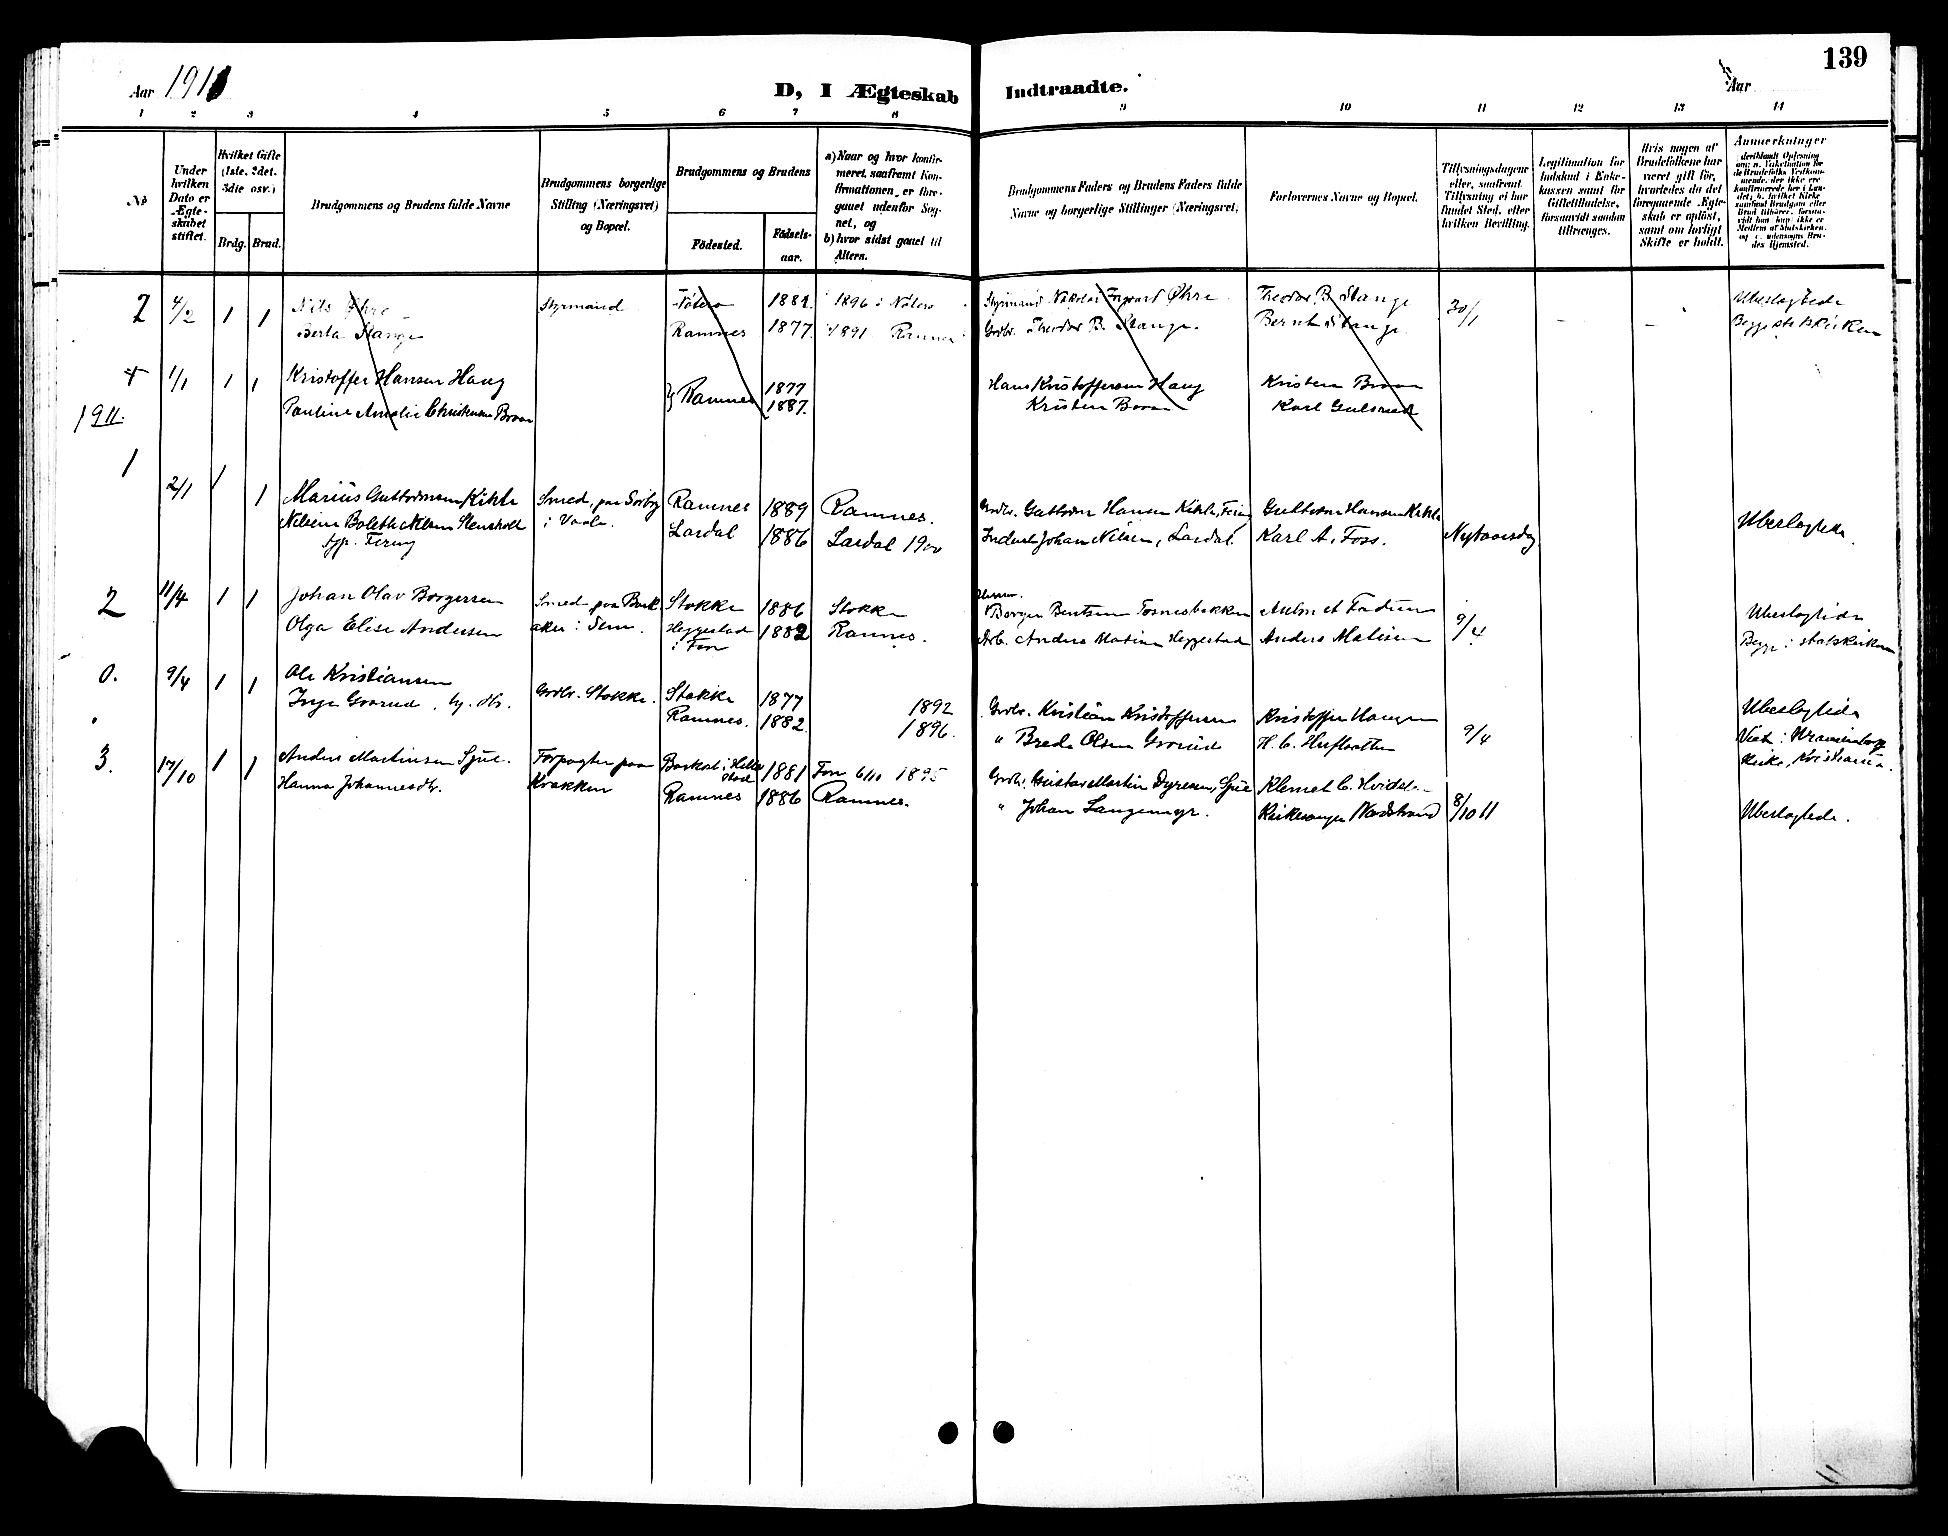 139
Aar 1911
D, I Ægteskab Indtraadte.
Aar
1 2 3 4 5 6 7 8 9 10 11 12 13 14
No
Under hvilken Dato er Ægteskabet stiftet.
Hvilket Gifte (1ste, 2det, 3die osv.)
Brdg. Brud.
Brudgommens og Brudens fulde Navne
Brudgommens borgerlige Stilling (Næringsvei) og Bopæl.
Brudgommens og Brudens
Födested.
Födselsaar.
a) Naar og hvor konfirmeret, saafremt Konfirmationen er foregaaet udenfor Sognet, og
b) hvor sidst gaaet til Alters.
Brudgommens Faders og Brudens Faders fulde Navne og borgerlige Stillinger (Næringsvei)
Forlovernes Navne og Bopæl.
Tillysningsdagene eller, saafremt Tillysning ei har fundet Sted, efter hvilken Bevilling.
Legitimation for Indskud i Enkekassen samt for Giftetilladelse, forsaavidt saadan tiltrænges.
Hvis nogen af Brudefolkene har været gift før, hvorledes da det foregaaende Ægteskab er opløst, samt om lovligt Skifte er holdt.
Anmærkninger
2 4/2 1 1 Nils Øhre Styrmand Nøterø 1881 1896 i Nøterø Styrmand Nikolai Ingvart Øhre Theodor B. Stange 30/1 - - Ubeslægtede
Berta Stange Ramnes 1877 1891 Ramnes Grdbr. Theodor B. Stange. Bernt Stange. Begge i statskirken
4 1/1 1 1 Kristoffer Hansen Haug } Ramnes 1877 Hans Kristoffersen Haug Kristen Braan
Pauline Amalie Christensen Braan 1887. Kristen Braan Karl Gulsrud
1911.
1 2/1 1 1 Marius Guttormsen Kikle Smed, paa Sørby Ramnes 1889 Ramnes. Grdbr. Guttorm Hansen Kikle, Guttorm Hansen Kikle
Nilsine Bolethe Nilsen Stensholt i Vaale. Lardal 1886 Lardal 1900 Inderst Johan Nilsen, Lardal. Karl A. Foss. Nytaarsdag Ubeslægtede.
2 11/4 1 1 Johan Olav Borgersen Smed paa Bark Stokke 1886 Stokke Borger Bentsen Fosnesbakken Ubeslægtede
Olga Elise Andersen aker i Sem. Heggestad i Fon 1882 Ramnes. Arb. Anders Matisen Heggestad Anders Matisen 9/4 Begge i statskirken
0. 9/4 1 1 Ole Kristiansen Grdbr. Stokke. Stokke 1877 1892 Grdbr. Kristian Kristoffersen Kristoffer Haugen 9/4 Ubeslægtede
Inga Gvarud Ramnes. 1882 1896. " Brede Olsen H. C.
Kirke, Kristiania.
3. 17/10 1 1 Anders Martinsen Sjue. Forpagter paa 1881 Fon 1895 Grdbr. Gustav Martin Dyresen, Sjue Klemet C.
Hanna Johannesdtr. Krakken Ramnes 1886 Ramnes. " Johan Langemyr. Kirkesanger Nordstrand 8/10 11 Ubeslægtede.